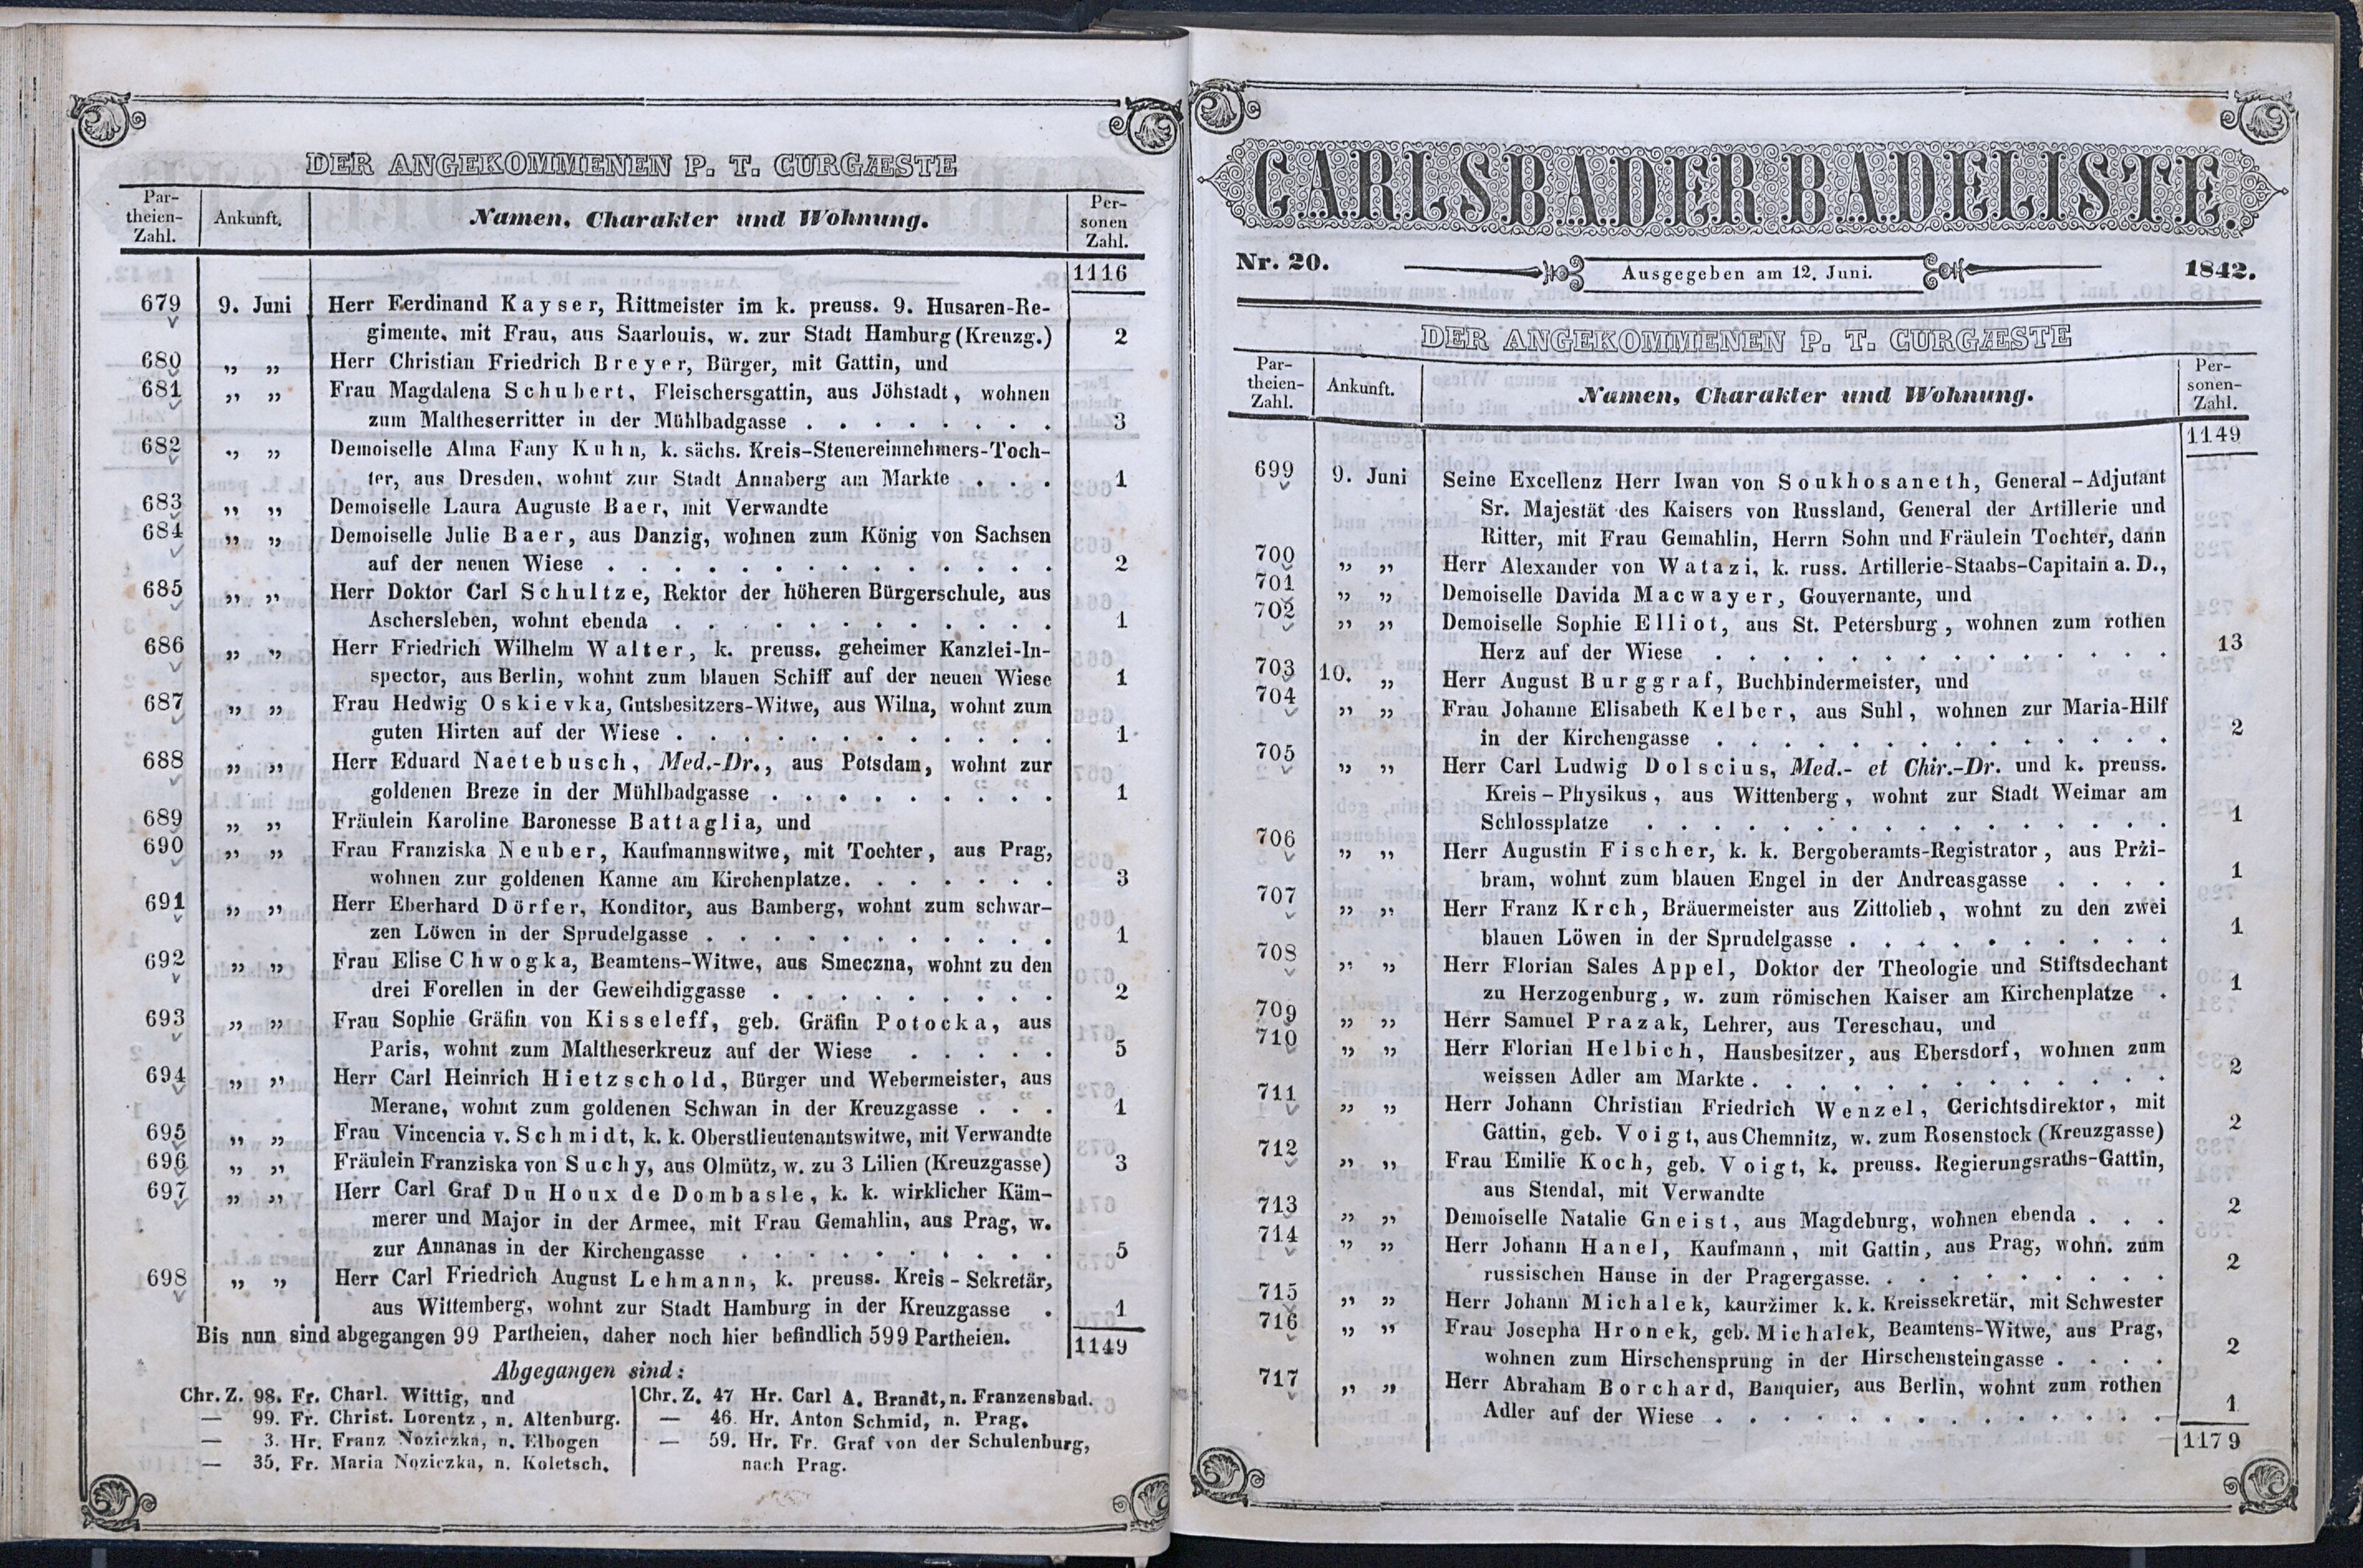 DER ANGEKOMMENEN P. T. CURGÆSTE
Par-
theien-
Zahl.
Ankunft.
Namen, Charakter und Wohnung.
Per-
sonen
Zahl.
1116
679 9. Juni Herr Ferdinand Kayser, Rittmeister im k. preuss. 9. Husaren-Re-
gimente, mit Frau, aus Saarlouis, w. zur Stadt Hamburg (Kreuzg.) 2
680 „ „ Herr Christian Friedrich Breyer, Bürger, mit Gattin, und
681 „ „ Frau Magdalena Schubert, Fleischersgattin, aus Jöhstadt, wohnen
zum Maltheserritter in der Mühlbadgasse . . . . . . . . 3
682 „ „ Demoiselle Alma Fany Kuhn, k. sächs. Kreis-Steuereinnehmers-Toch-
ter, aus Dresden, wohnt zur Stadt Annaberg am Markte . . . 1
683 „ „ Demoiselle Laura Auguste Baer, mit Verwandte
684 „ „ Demoiselle Julie Baer, aus Danzig, wohnen zum König von Sachsen
auf der neuen Wiese . . . . . . . . . . . . . . 2
685 „ „ Herr Doktor Carl Schultze, Rektor der höheren Bürgerschule, aus
Aschersleben, wohnt ebenda . . . . . . . . . . . . 1
686 „ „ Herr Friedrich Wilhelm Walter, k. preuss. geheimer Kanzlei-In-
spector, aus Berlin, wohnt zum blauen Schiff auf der neuen Wiese 1
687 „ „ Frau Hedwig Oskievka, Gutsbesitzers-Witwe, aus Wilna, wohnt zum
guten Hirten auf der Wiese . . . . . . . . . . . . 1
688 „ „ Herr Eduard Naetebusch, Med.-Dr., aus Potsdam, wohnt zur
goldenen Breze in der Mühlbadgasse . . . . . . . . . 1
689 „ „ Fräulein Karoline Baronesse Battaglia, und
690 „ „ Frau Franziska Neuber, Kaufmannswitwe, mit Tochter, aus Prag,
wohnen zur goldenen Kanne am Kirchenplatze. . . . . . . 3
691 „ „ Herr Eberhard Dörfer, Konditor, aus Bamberg, wohnt zum schwar-
zen Löwen in der Sprudelgasse . . . . . . . . . . . 1
692 „ „ Frau Elise Chwogka, Beamtens-Witwe, aus Smeczna, wohnt zu den
drei Forellen in der Geweihdiggasse . . . . . . . . . 2
693 „ „ Frau Sophie Gräfin von Kisseleff, geb. Gräfin Potocka, aus
Paris, wohnt zum Maltheserkreuz auf der Wiese . . . . . 5
694 „ „ Herr Carl Heinrich Hietzschold, Bürger und Webermeister, aus
Merane, wohnt zum goldenen Schwan in der Kreuzgasse . . . 1
695 „ „ Frau Vincencia v. Schmidt, k. k. Oberstlieutenantswitwe, mit Verwandte
696 „ „ Fräulein Franziska von Suchy, aus Olmütz, w. zu 3 Lilien (Kreuzgasse) 3
697 „ „ Herr Carl Graf Du Houx de Dombasle, k. k. wirklicher Käm-
merer und Major in der Armee, mit Frau Gemahlin, aus Prag, w.
zur Annanas in der Kirchengasse . . . . . . . . . . 5
698 „ „ Herr Carl Friedrich August Lehmann, k. preuss. Kreis-Sekretär,
aus Wittemberg, wohnt zur Stadt Hamburg in der Kreuzgasse . 1
Bis nun sind abgegangen 99 Partheien, daher noch hier befindlich 599 Partheien. 1149
Abgegangen sind:
Chr. Z. 98. Fr. Charl. Wittig, und
— 99. Fr. Christ. Lorentz, n. Altenburg.
— 3. Hr. Franz Noziczka, n. Elbogen
— 35. Fr. Maria Noziczka, n. Koletsch.
Chr. Z. 47 Hr. Carl A. Brandt, n. Franzensbad.
— 46. Hr. Anton Schmid, n. Prag.
— 59. Hr. Fr. Graf von der Schulenburg,
nach Prag.
CARLSBADER BADELISTE.
Nr. 20. Ausgegeben am 12. Juni. 1842.
DER ANGEKOMMENEN P. T. CURGÆSTE
Par-
theien-
Zahl.
Ankunft.
Namen, Charakter und Wohnung.
Per-
sonen-
Zahl.
1149
699 9. Juni Seine Excellenz Herr Iwan von Soukhosaneth, General-Adjutant
Sr. Majestät des Kaisers von Russland, General der Artillerie und
Ritter, mit Frau Gemahlin, Herrn Sohn und Fräulein Tochter, dann
700 „ „ Herr Alexander von Watazi, k. russ. Artillerie-Staabs-Capitain a. D.,
701 „ „ Demoiselle Davida Macwayer, Gouvernante, und
702 „ „ Demoiselle Sophie Elliot, aus St. Petersburg, wohnen zum rothen
Herz auf der Wiese . . . . . . . . . . . . . . 13
703 10. „ Herr August Burggraf, Buchbindermeister, und
704 „ „ Frau Johanne Elisabeth Kelber, aus Suhl, wohnen zur Maria-Hilf
in der Kirchengasse . . . . . . . . . . . . . . 2
705 „ „ Herr Carl Ludwig Dolscius, Med.- et Chir.-Dr. und k. preuss.
Kreis-Physikus, aus Wittenberg, wohnt zur Stadt Weimar am
Schlossplatze . . . . . . . . . . . . . . . . 1
706 „ „ Herr Augustin Fischer, k. k. Bergoberamts-Registrator, aus Prži-
bram, wohnt zum blauen Engel in der Andreasgasse . . . . 1
707 „ „ Herr Franz Krch, Bräuermeister aus Zittolieb, wohnt zu den zwei
blauen Löwen in der Sprudelgasse . . . . . . . . . . 1
708 „ „ Herr Florian Sales Appel, Doktor der Theologie und Stiftsdechant
zu Herzogenburg, w. zum römischen Kaiser am Kirchenplatze . 1
709 „ „ Herr Samuel Prazak, Lehrer, aus Tereschau, und
710 „ „ Herr Florian Helbich, Hausbesitzer, aus Ebersdorf, wohnen zum
weissen Adler am Markte . . . . . . . . . . . . . 2
711 „ „ Herr Johann Christian Friedrich Wenzel, Gerichtsdirektor, mit
Gattin, geb. Voigt, aus Chemnitz, w. zum Rosenstock (Kreuzgasse) 2
712 „ „ Frau Emilie Koch, geb. Voigt, k. preuss. Regierungsraths-Gattin,
aus Stendal, mit Verwandte
713 „ „ Demoiselle Natalie Gneist, aus Magdeburg, wohnen ebenda . . . 2
714 „ „ Herr Johann Hanel, Kaufmann, mit Gattin, aus Prag, wohn. zum
russischen Hause in der Pragergasse. . . . . . . . . . 2
715 „ „ Herr Johann Michalek, kauržimer k. k. Kreissekretär, mit Schwester
716 „ „ Frau Josepha Hronek, geb. Michalek, Beamtens-Witwe, aus Prag,
wohnen zum Hirschensprung in der Hirschensteingasse . . . . 2
717 „ „ Herr Abraham Borchard, Banquier, aus Berlin, wohnt zum rothen
Adler auf der Wiese . . . . . . . . . . . . . . 1
1179